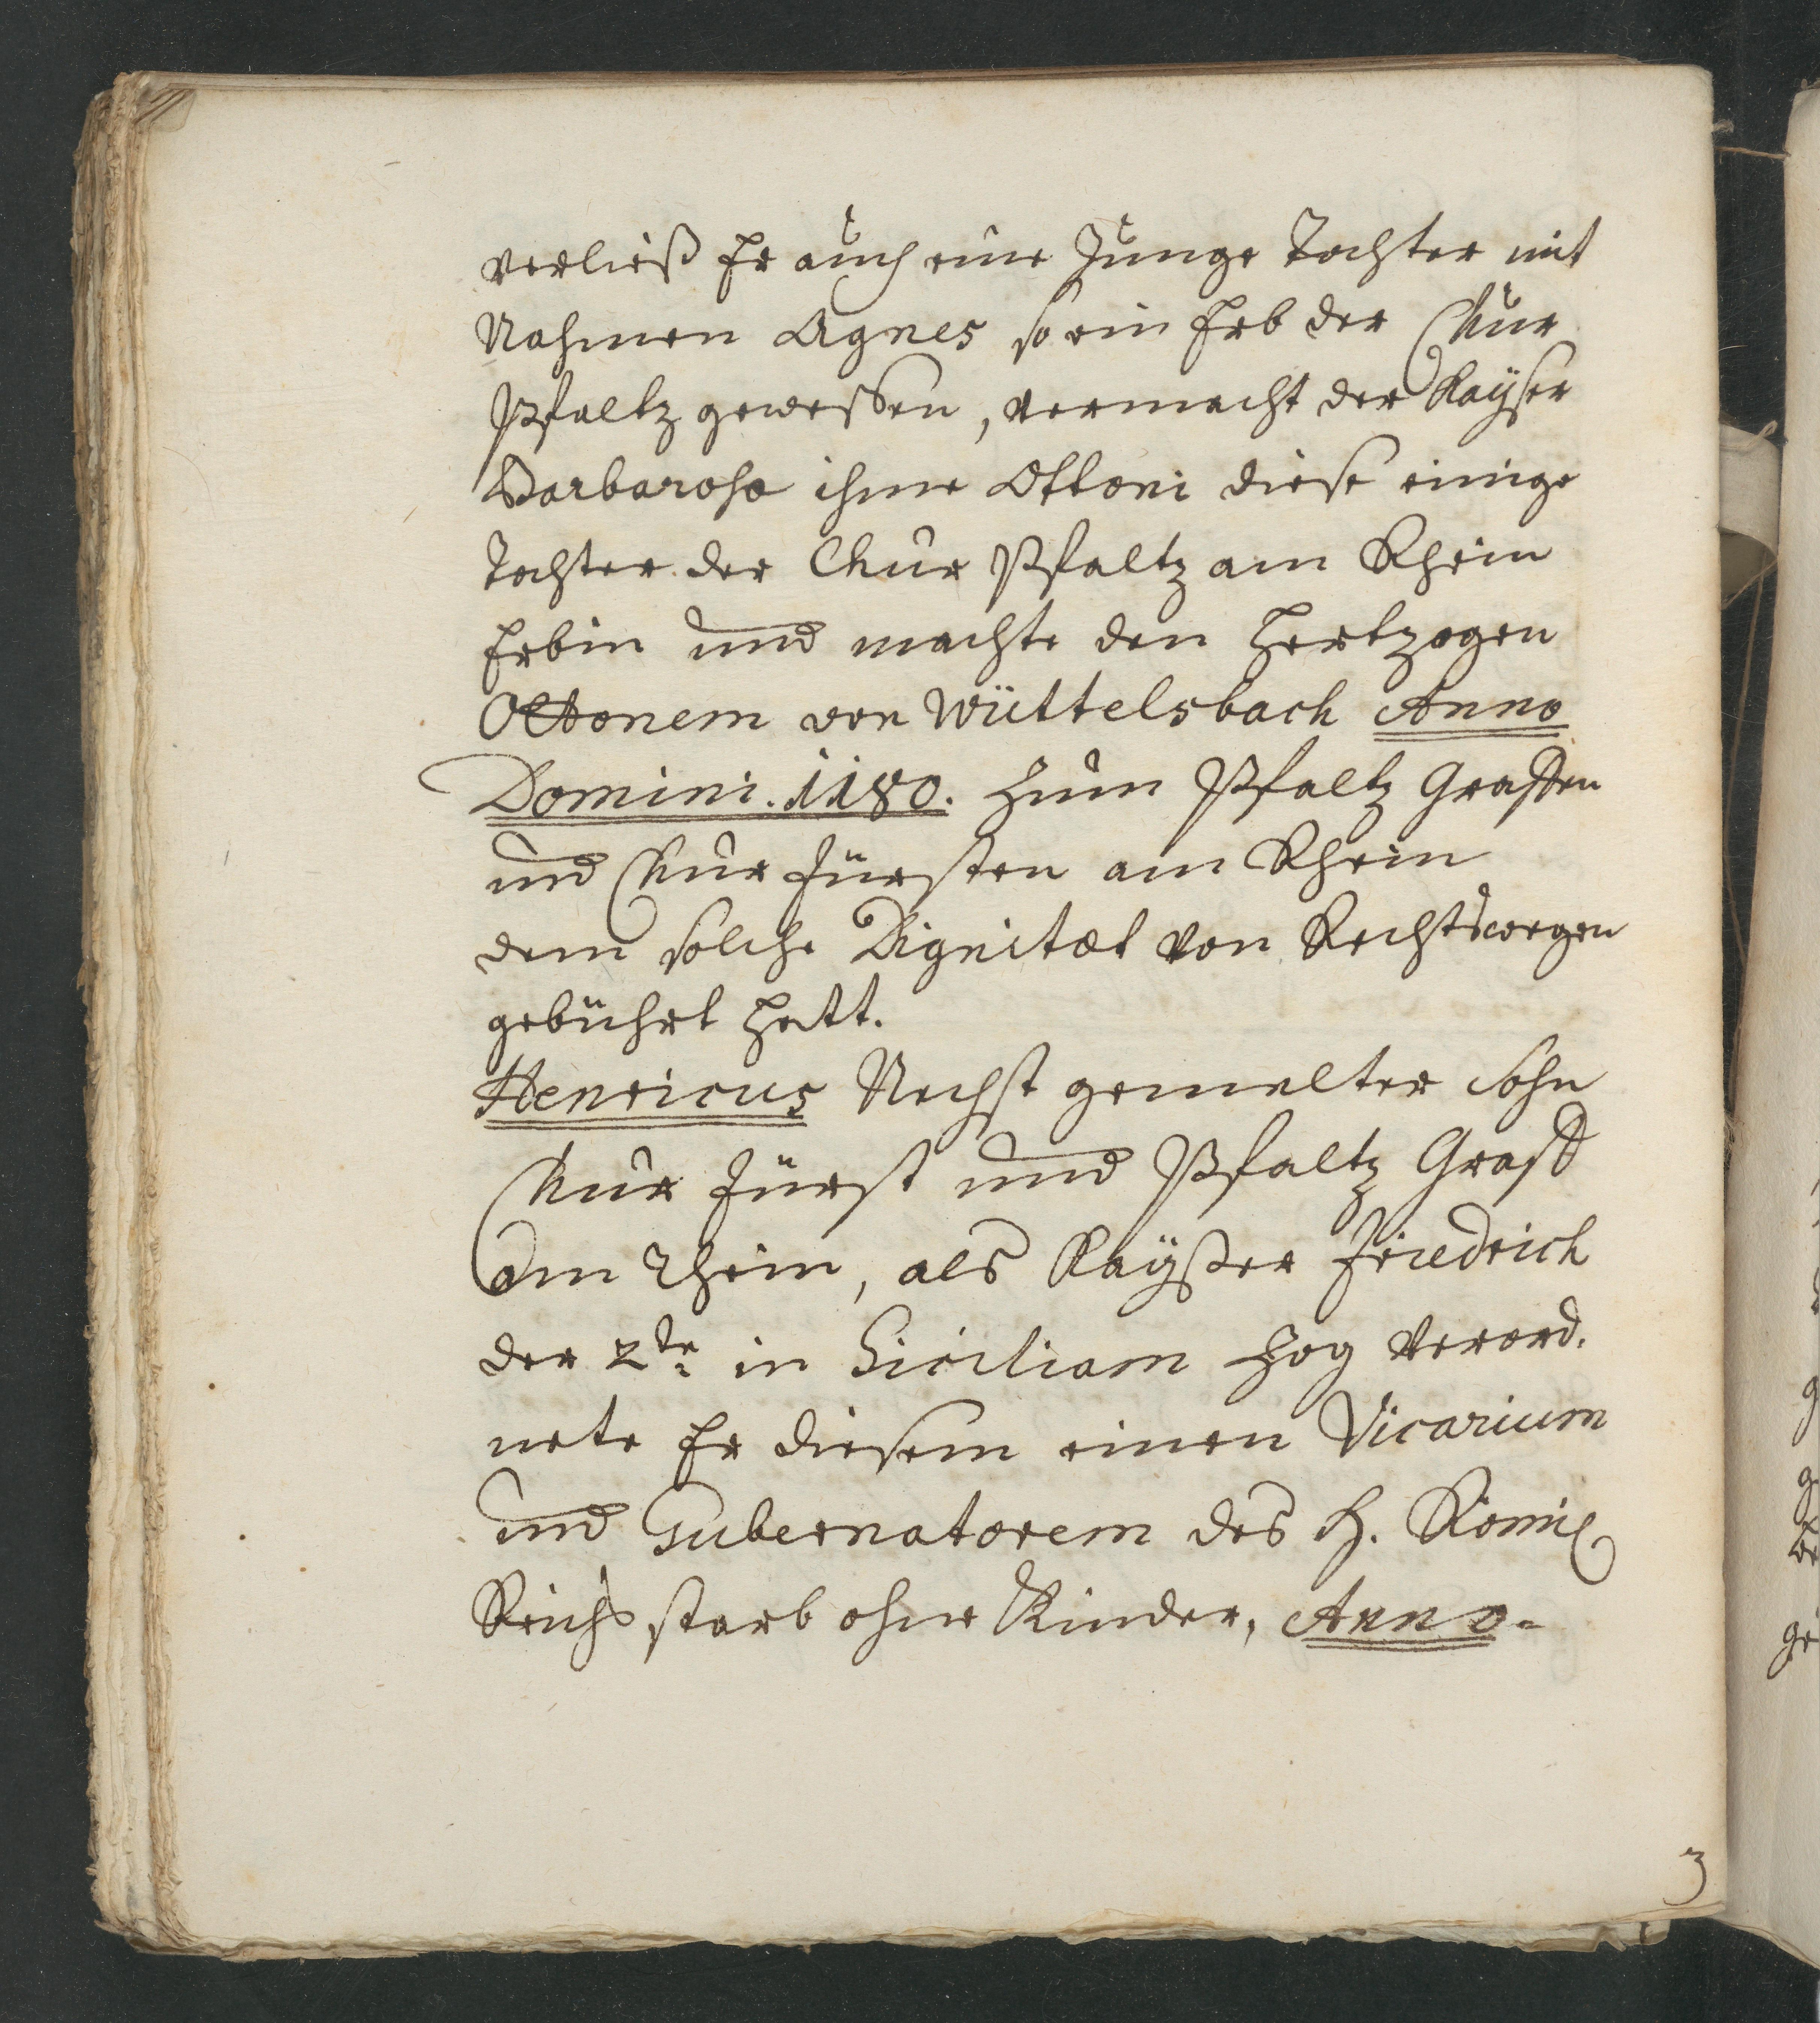 verließ Er auch eine Junge Tochter mit
Nahmen Agnes so ein Erb der Chur
Pfaltz geweßen, vermacht der Kayser
Barbarosa ihme Ottoni diese einige
Tochter der Chur Pfaltz am Rhein
Erbin und machte den Hertzogen
Ottonem von Wüttelsbach Anno
Domini. 1180. zum Pfaltz Graffen
und Chur Fürsten am Rhein
dem solche Dignitæt von Rechtswegen
gebührt hatt.
Henricus Nechst gemelter Sohn
Chur Fürst und Pfaltz Graff
am Rhein, als Kayßer Friedrich
der 2te in Siciliam zog verord.
nete Er diesem einen Vicarium
und Gubernatorem des H. Römi
Reichs starb ohne Kinder, Anno-
3